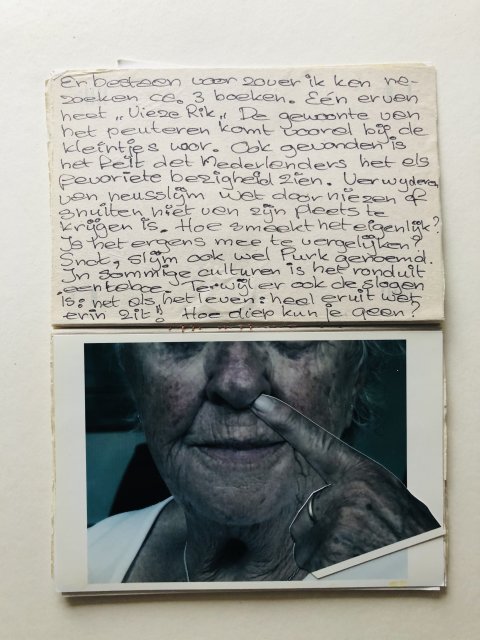 Er bestaan voor zover ik kan na-
zoeken ca. 3 boeken. Eén ervan
heet „Vieze Rik„ De gewoonte van
het peuteren komt vooral bij de
kleintjes voor. Ook gevonden is
het feit dat Nederlanders het als
favoriete bezigheid zien. Verwyderen
van neusslijm wat door niezen of
snuiten niet van zijn plaats te
krijgen is. Hoe smaakt het eigenlijk?
Is het ergens mee te vergelijken?
Snot, slijm ook wel Furk genoemd.
In sommige culturen is het ronduit
een taboe. Terwijl er ook de slogan
is: net als het leven: heel eruit wat
erin zit! Hoe diep kun je gaan?